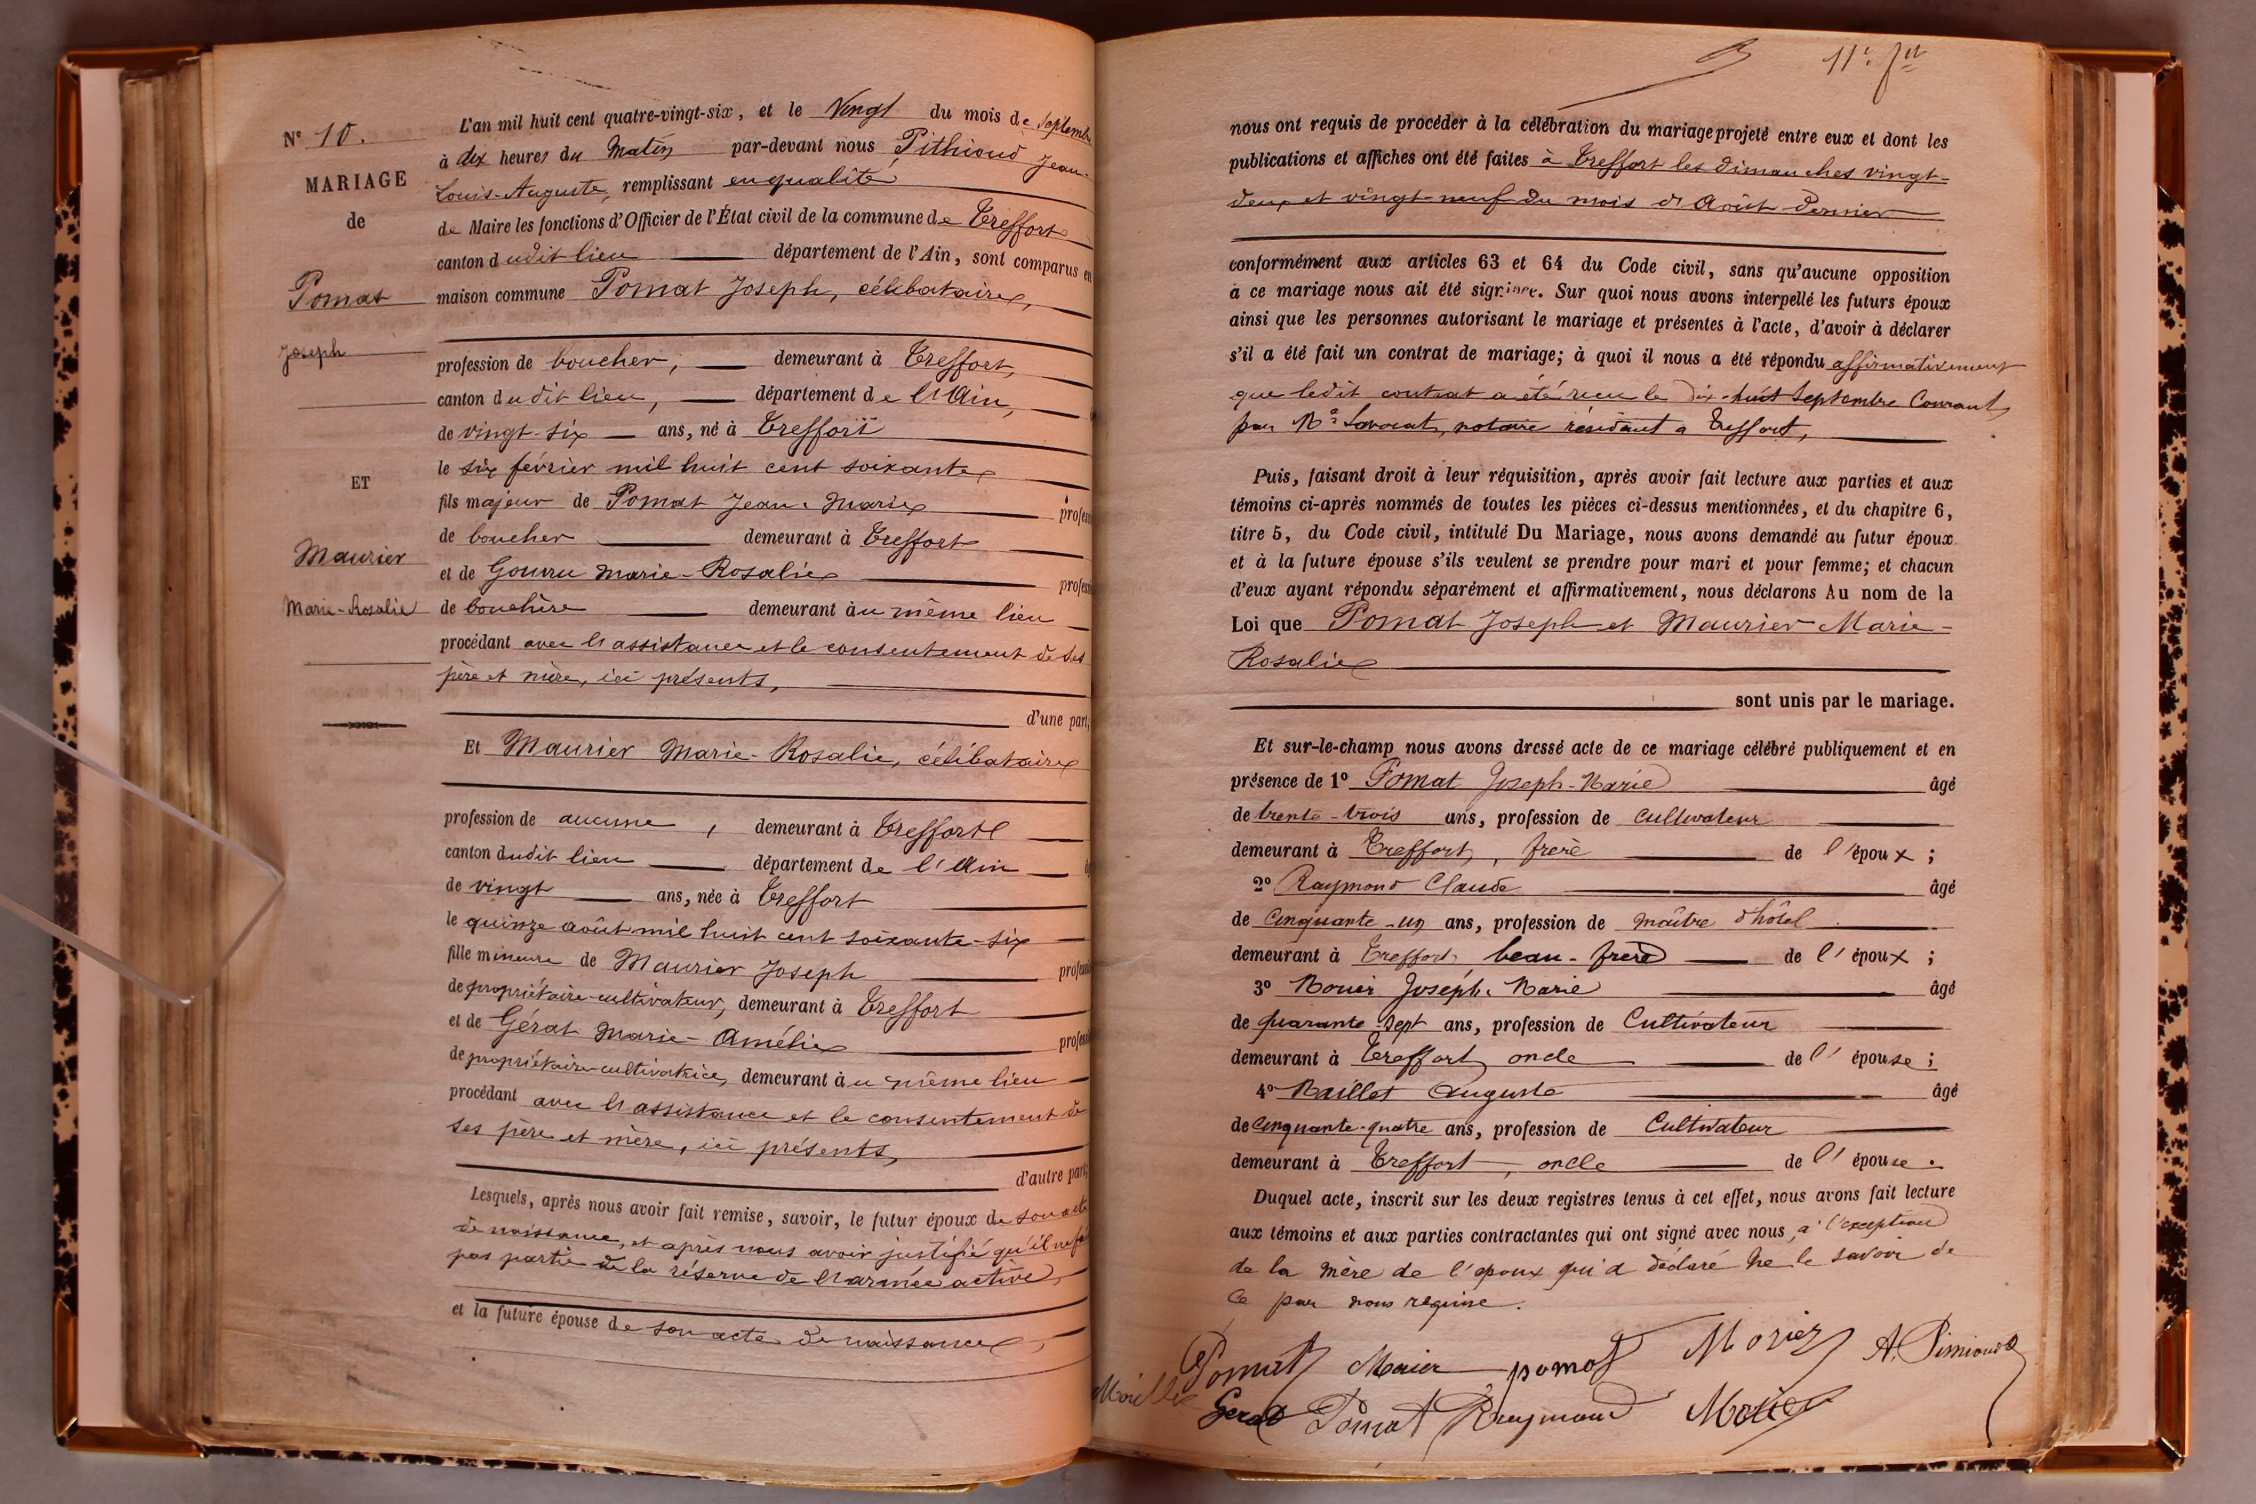 N° 10.
MARIAGE
de
Pomat
Joseph
ET
Maurier
Marie-Rosalie
L'an mil huit cent quatre-vingt-six, et le Vingt du mois de Septembre
à dix heures du Matin par-devant nous Pithioud Jean-
Louis-Auguste, remplissant en qualité
de Maire les fonctions d'Officier de l'État civil de la commune de Treffort
canton dudit lieu département de l'Ain, sont comparus en
maison commune Pomat Joseph, célibataire,
profession de boucher, demeurant à Treffort,
canton dudit lieu, département de l'Ain,
de vingt-six ans, né à Treffort
le six février mil huit cent soixante,
fils majeur de Pomat Jean-Marie profess
de boucher demeurant à Treffort
et de Gouvu Marie-Rosalie professi
de bouchère demeurant au même lieu
procédant avec l'assistance et le consentement de ses
père et mère, ici présents,
d'une part,
Et Maurier Marie-Rosalie, célibataire
profession de aucune, demeurant à Treffort
canton dudit lieu département de l'Ain
de vingt ans, née à Treffort
le quinze août mil huit cent soixante-six
fille mineure de Maurier Joseph professi
de propriétaire-cultivateur, demeurant à Treffort
et de Gérat Marie-Amélie professi
de propriétaire-cultivatrice, demeurant au même lieu
procédant avec l'assistance et le consentement de
ses père et mère, ici présents,
d'autre part;
Lesquels, après nous avoir fait remise, savoir, le futur époux de son acte
de naissance, et après nous avoir justifié qu'il ne fait
pas partie de la réserve de l'armée active,
et la future épouse de son acte de naissance,
11e fet
nous ont requis de procéder à la célébration du mariage projeté entre eux et dont les
publications et affiches ont été faites à Treffort les dimanches vingt-
deux et vingt-neuf du mois d'Août dernier
conformément aux articles 63 et 64 du Code civil, sans qu'aucune opposition
à ce mariage nous ait été signifiée. Sur quoi nous avons interpellé les futurs époux
ainsi que les personnes autorisant le mariage et présentes à l'acte, d'avoir à déclarer
s'il a été fait un contrat de mariage; à quoi il nous a été répondu affirmativement
que ledit contrat a été reçu le dix-huit Septembre Courant
par Me Lavocat, notaire résidant à Treffort,
Puis, faisant droit à leur réquisition, après avoir fait lecture aux parties et aux
témoins ci-après nommés de toutes les pièces ci-dessus mentionnées, et du chapitre 6,
titre 5, du Code civil, intitulé Du Mariage, nous avons demandé au futur époux
et à la future épouse s'ils veulent se prendre pour mari et pour femme; et chacun
d'eux ayant répondu séparément et affirmativement, nous déclarons Au nom de la
Loi que Pomat Joseph et Maurier Marie-
Rosalie
sont unis par le mariage.
Et sur-le-champ nous avons dressé acte de ce mariage célébré publiquement et en
présence de 1° Pomat Joseph-Marie âgé
de trente-trois ans, profession de cultivateur
demeurant à Treffort, frère de l'époux;
2° Raymond Claude âgé
de Cinquante-un ans, profession de maître d'hôtel
demeurant à Treffort, beau-frère de l'époux;
3° Morier Joseph-Marie âgé
de quarante-sept ans, profession de Cultivateur
demeurant à Treffort, oncle de l'épouse;
4° Maillet Auguste âgé
de Cinquante-quatre ans, profession de Cultivateur
demeurant à Treffort, oncle de l'épouse.
Duquel acte, inscrit sur les deux registres tenus à cet effet, nous avons fait lecture
aux témoins et aux parties contractantes qui ont signé avec nous, à l'exception
de la mère de l'époux qui a déclaré ne le savoir de
ce par nous requise.
Pomat Morier pomat Morier
Gerat Pomat Raymond Morier